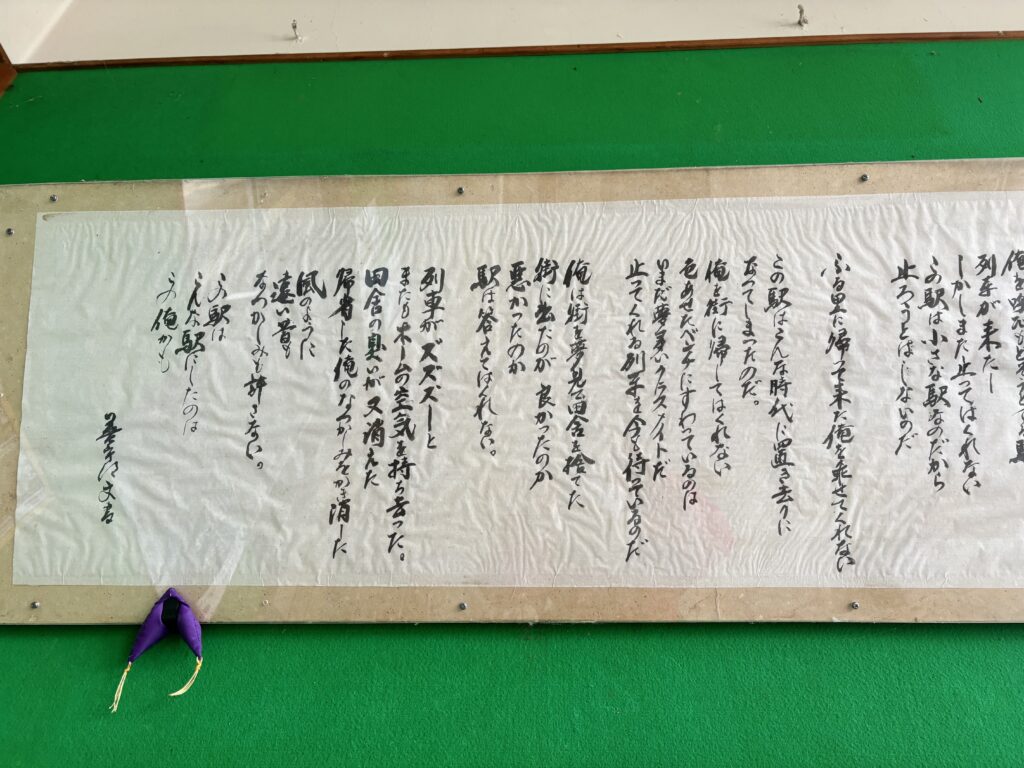 列車が来た
しかしまた止ってはくれない
この駅は小さな駅なのだから
止ろうとはしないのだ
ふる里に帰って来た俺を乗せてくれない
この駅はこんな時代に置き去りに
なってしまったのだ。
俺を街に帰してはくれない
色あせたベンチにすわっているのは
いまだ夢多いクラスメイトだ
止ってくれる列車を今も待っているのだ
俺は街を夢見て田舎を捨てた
街に出たのが良かったのか
悪かったのか
駅は答えてはくれない。
列車がズズズーと
またもホームの空気を持ち去った。
田舎の臭いが又消えた
帰省した俺のなつかしみをかき消した
風のように
遠い昔も
なつかしみも許さない。
この駅は
こんな駅にしたのは
この俺かも